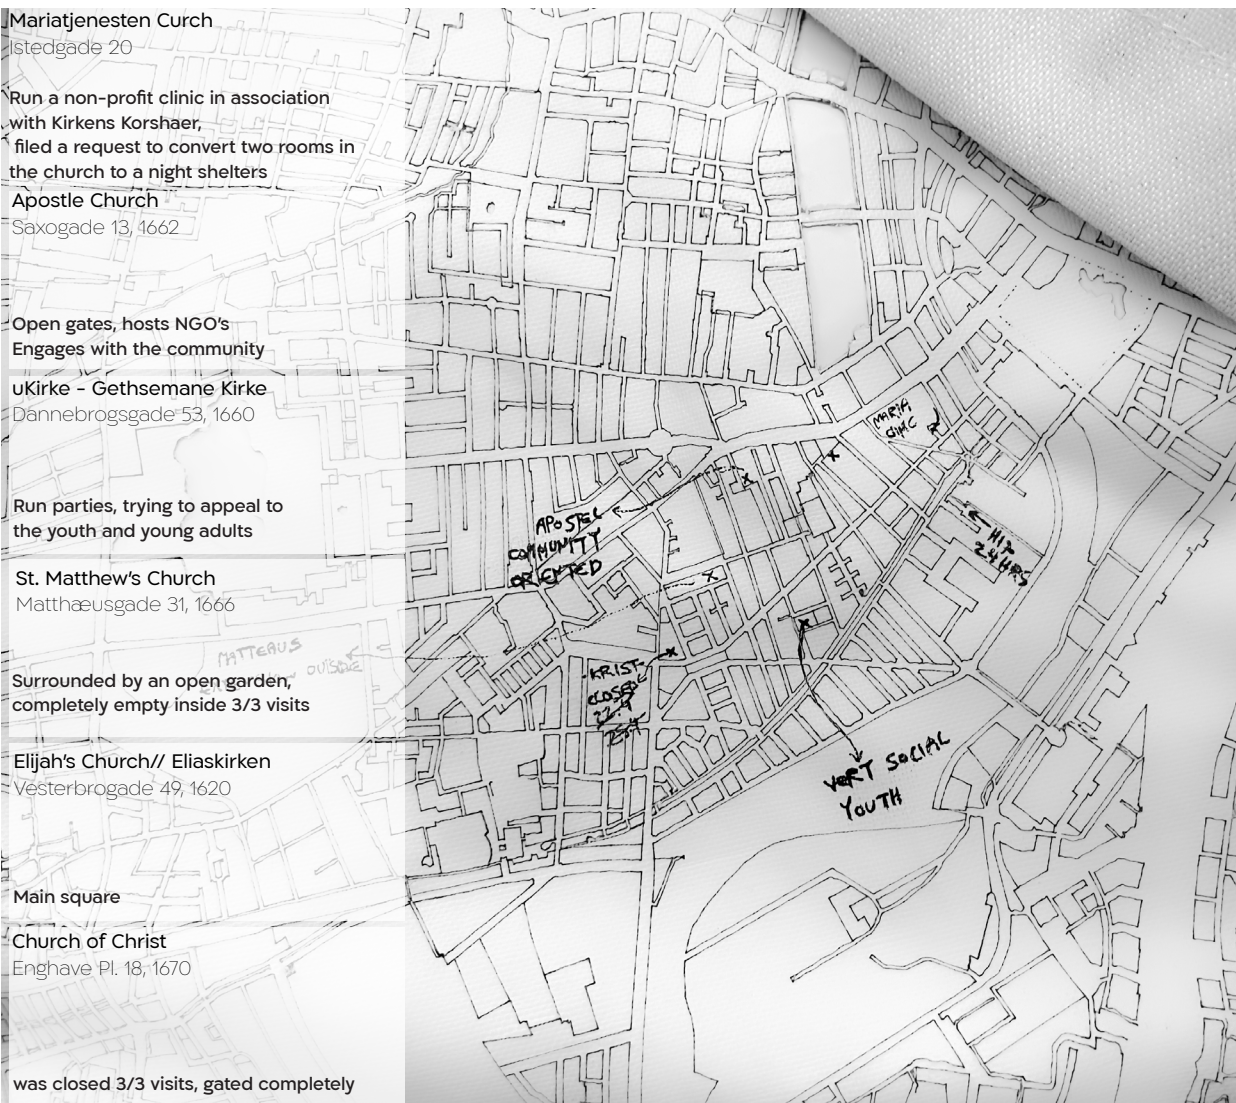 Mariatjenesten Curch
Istedgade 20
Run a non-profit clinic in association
with Kirkens Korshaer,
filed a request to convert two rooms in
the church to a night shelters
Apostle Church
Saxogade 13, 1662
Open gates, hosts NGO's
Engages with the community
uKirke - Gethsemane Kirke
Dannebrogsgade 53, 1660
Run parties, trying to appeal to
the youth and young adults
St. Matthew's Church
Matthæusgade 31, 1666
MATTEAUS
OUTSIDE
Surrounded by an open garden,
completely empty inside 3/3 visits
Elijah's Church// Eliaskirken
Vesterbrogade 49, 1620
Main square
Church of Christ
Enghave Pl. 18, 1670
was closed 3/3 visits, gated completely
MARIA
APOSTEL
COMMUNITY
ORIENTED
24 HRS
KRIST-
CLOSED
22.4
25.4
VERT SOCIAL
YOUTH